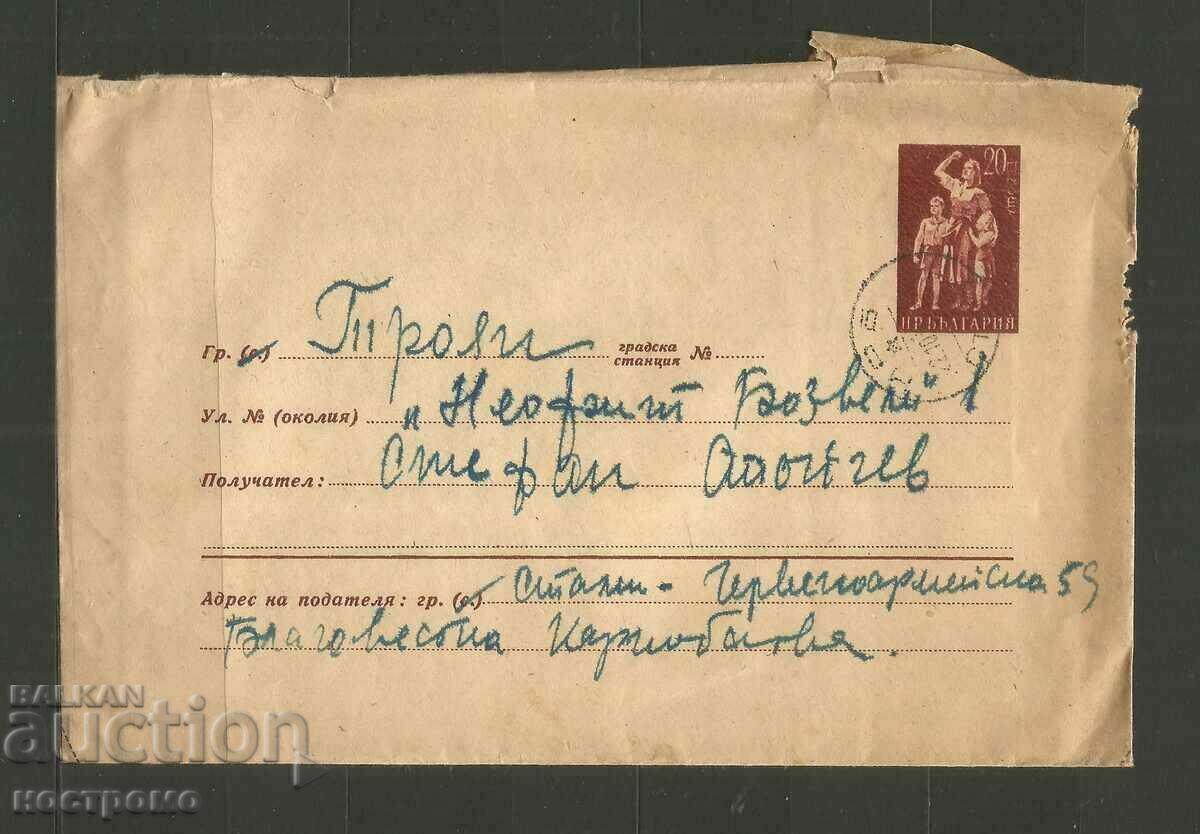 20
НР БЪЛГАРИЯ
Гр. (с.) Троян градска станция №
Ул. № (околия) „Неофит Бозвели" 1
Получател: Стефан
Адрес на подателя: гр. (с.) Сталин - Червеноармейска 59
Благовестна
BALKAN
auction
ностромо